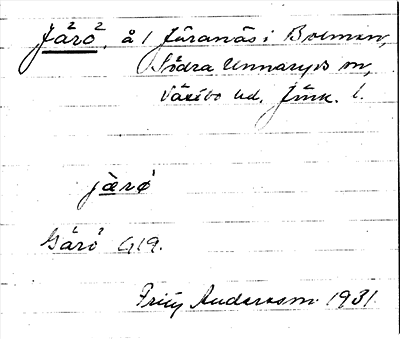 Järö, å l Järanäs i Bolmen,
Södra Unnaryds sn,
Västbo hd. Jönk. l.
jærö
Gärö G19.
Fritz Andersson 1931.